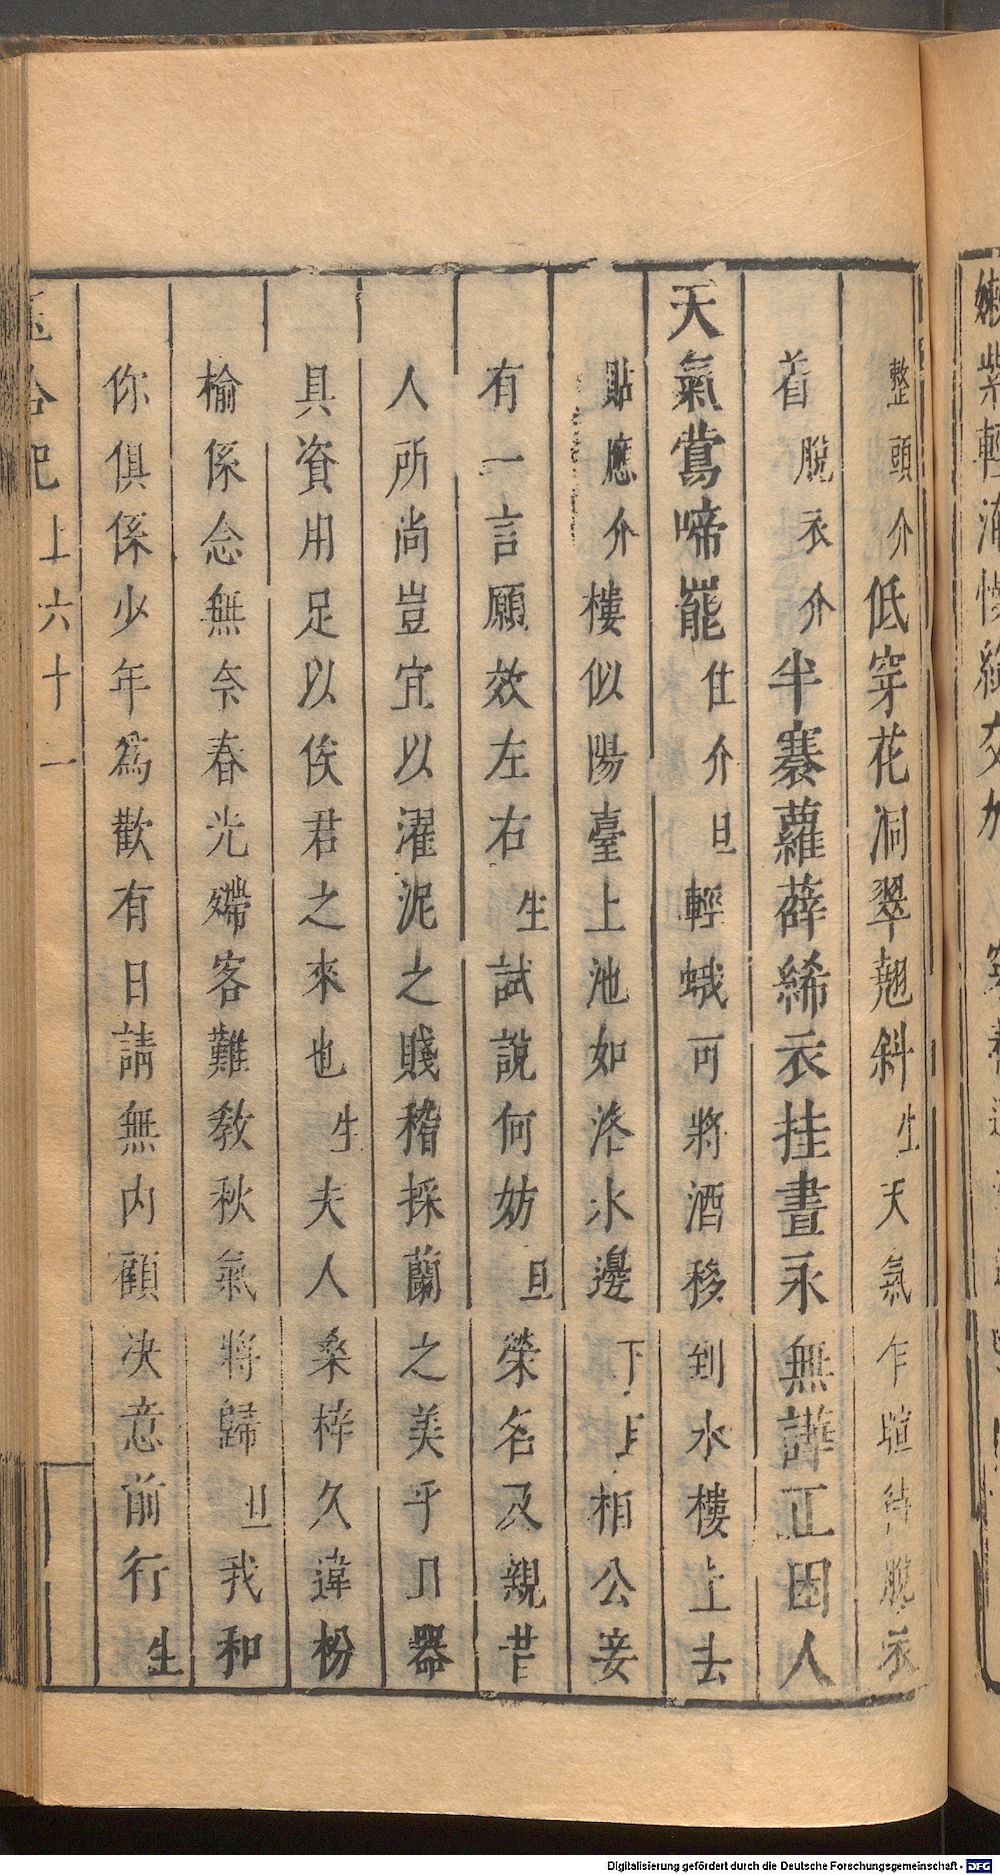 整頭介低穿花洞翠翹斜生天氣乍暄待脫衣
着脫衣介半褰蘿薜絺衣挂晝永無譁正困人
天氣鶯啼罷仕介旦輕蛾可將酒移到水樓上去
貼應介樓似陽臺上池如洛水邊下旦相公妾
有一言願效左右生試說何妨旦榮名及親昔
人所尚豈宜以濯泥之賤稽採蘭之美乎且器
具資用足以俟君之來也生夫人桑梓久違枌
榆係念無奈春光殢客難教秋氣將歸旦我和
你俱係少年爲歡有日請無內顧決意前行生
玉合記 上六十二
嫩紫輕
Digitalisierung gefördert durch die Deutsche Forschungsgemeinschaft - DFG